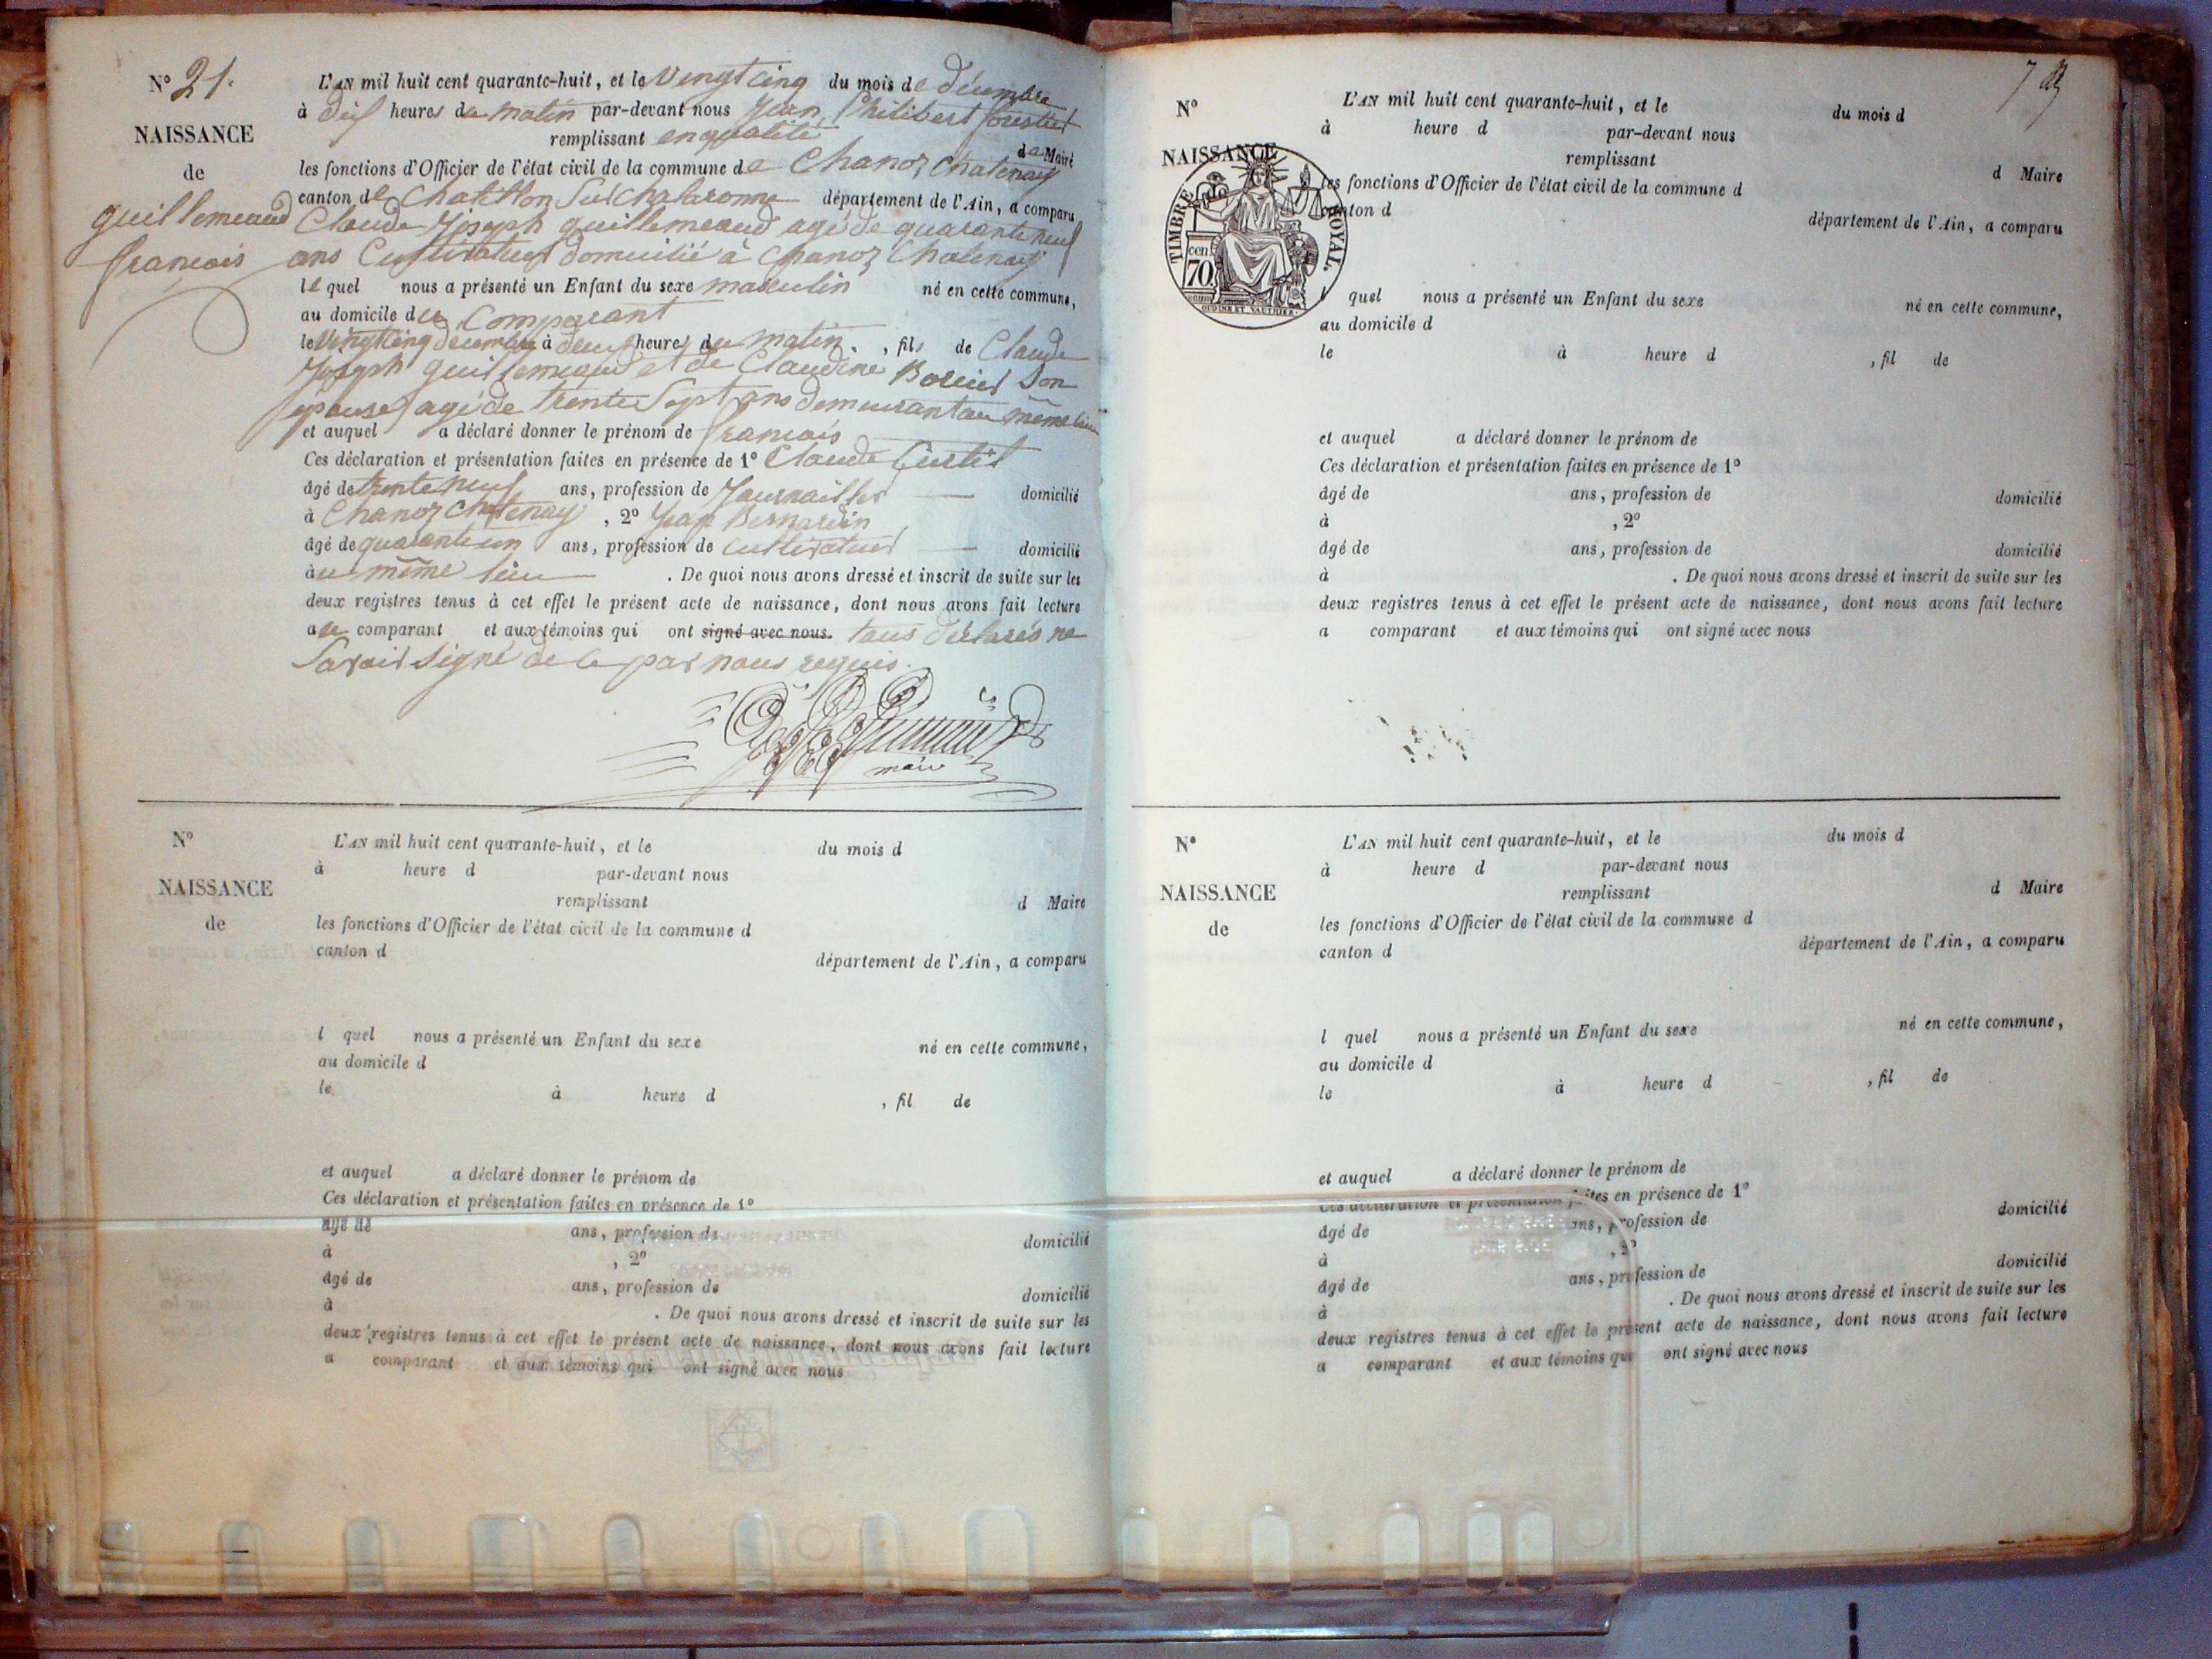 N° 21.
NAISSANCE
de
guillemeaud
francois
L'AN mil huit cent quarante-huit, et le Vingt cinq du mois de décembre
à dix heures du matin par-devant nous Jean Philibert forestier
remplissant en qualité de Maire
les fonctions d'Officier de l'état civil de la commune de Chanoz Chatenay
canton de Chatillon Sur Chalaronne département de l'Ain, a comparu
Claude Joseph guillemeaud agé de quarante neuf
ans Cultivateur domicilié à Chanoz Chatenay
le quel nous a présenté un Enfant du sexe masculin né en cette commune,
au domicile du Comparant
le Vingt cinq décembre à deux heures du matin. , fils de Claude
Joseph guillemeaud et de Claudine Borcier Son
épouse agé de trente Sept ans demeurant au même lieu
et auquel a déclaré donner le prénom de francois
Ces déclaration et présentation faites en présence de 1° Claude
âgé de trente neuf ans, profession de Journaillier domicilié
à Chanoz Chatenay , 2° Jean Bernardin
âgé de quarante un ans, profession de Cultivateur domicilié
au même lieu . De quoi nous avons dressé et inscrit de suite sur les
deux registres tenus à cet effet le présent acte de naissance, dont nous avons fait lecture
au comparant et aux témoins qui ont signé avec nous. tous déclarés ne
Savoir Signé de ce par nous requis.
maire
N°
NAISSANCE
de
L'AN mil huit cent quarante-huit, et le du mois d
à heure d par-devant nous
remplissant d Maire
les fonctions d'Officier de l'état civil de la commune d
canton d département de l'Ain, a comparu
l quel nous a présenté un Enfant du sexe né en cette commune,
au domicile d
le à heure d , fil de
et auquel a déclaré donner le prénom de
Ces déclaration et présentation faites en présence de 1°
âgé de ans, profession de domicilié
à , 2°
âgé de ans, profession de domicilié
à . De quoi nous avons dressé et inscrit de suite sur les
deux registres tenus à cet effet le présent acte de naissance, dont nous avons fait lecture
a comparant et aux témoins qui ont signé avec nous
7
N°
NAISSANCE
de
TIMBRE ROYAL.
70 cen
L'AN mil huit cent quarante-huit, et le du mois d
à heure d par-devant nous
remplissant d Maire
les fonctions d'Officier de l'état civil de la commune d
canton d département de l'Ain, a comparu
l quel nous a présenté un Enfant du sexe né en cette commune,
au domicile d
le à heure d , fil de
et auquel a déclaré donner le prénom de
Ces déclaration et présentation faites en présence de 1°
âgé de ans, profession de domicilié
à , 2°
âgé de ans, profession de domicilié
à . De quoi nous avons dressé et inscrit de suite sur les
deux registres tenus à cet effet le présent acte de naissance, dont nous avons fait lecture
a comparant et aux témoins qui ont signé avec nous
N°
NAISSANCE
de
L'AN mil huit cent quarante-huit, et le du mois d
à heure d par-devant nous
remplissant d Maire
les fonctions d'Officier de l'état civil de la commune d
canton d département de l'Ain, a comparu
l quel nous a présenté un Enfant du sexe né en cette commune,
au domicile d
le à heure d , fil de
et auquel a déclaré donner le prénom de
Ces déclaration et présentation faites en présence de 1°
âgé de ans, profession de domicilié
à , 2°
âgé de ans, profession de domicilié
à . De quoi nous avons dressé et inscrit de suite sur les
deux registres tenus à cet effet le présent acte de naissance, dont nous avons fait lecture
a comparant et aux témoins qui ont signé avec nous